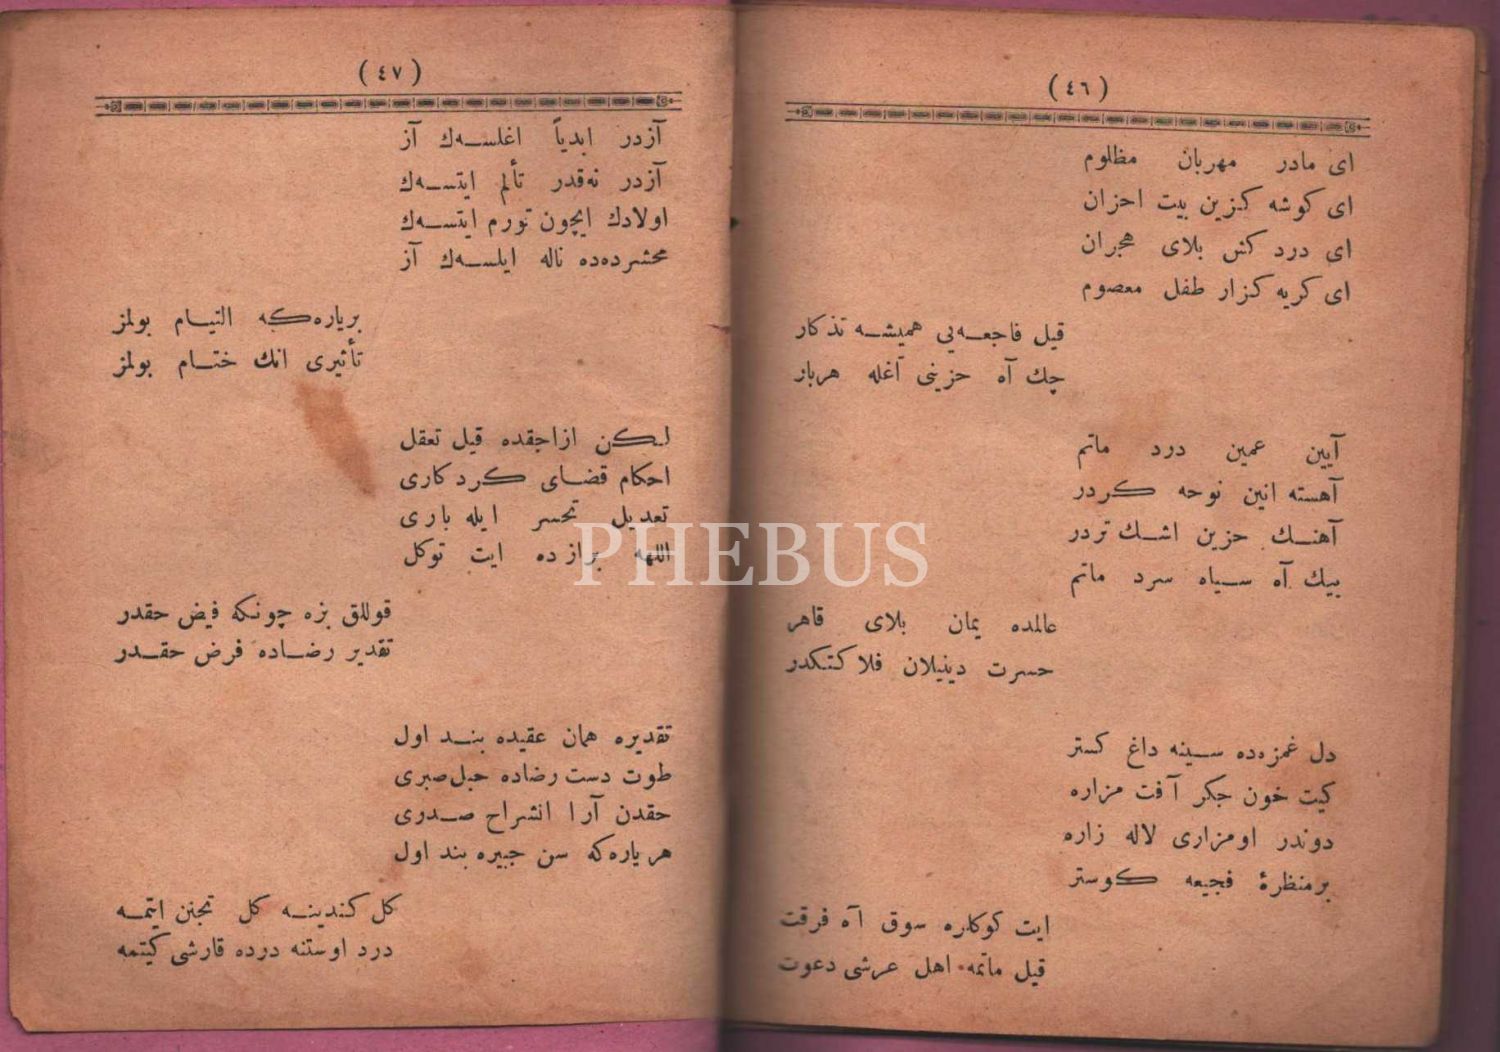 ( ٤٦ )
ای مادر مهربان مظلوم
ای كوشه كزین بیت احزان
ای درد كش بلای هجران
ای كریه كزار طفل معصوم
قیل فاجعه‌یی همیشه تذكار
چك آه حزینی آغله هربار
آیین عمین درد ماتم
آهسته انین نوحه كردر
آهنك حزین اشك تردر
بیك آه سیاه سرد ماتم
عالمده یمان بلای قاهر
حسرت دینیلان فلاكتكدر
دل غمزه‌ده سینه داغ كستر
كیت خون جكر آفت مزاره
دوندر اومزاری لاله زاره
برمنظرهٔ فجیعه كوستر
ایت كوكلره سوق آه فرقت
قیل ماتمه اهل عرشی دعوت
( ٤٧ )
آزدر ابدیاً اغلسه‌ك آز
آزدر نه‌قدر تألم ایتسه‌ك
اولادك ایچون تورم ایتسه‌ك
محشرده‌ده ناله ایلسه‌ك آز
بریاره‌كه التیام بولمز
تأثیری انك ختام بولمز
لكن ازاجقده قیل تعقل
احكام قضای كردكاری
تعدیل تحسر ایله باری
اللهه برازده ایت توكل
قوللق بزه چونكه فیض حقدر
تقدیر رضاده فرض حقدر
تقدیره همان عقیده بند اول
طوت دست رضاده حبل صبری
حقدن آرا انشراح صدری
هریاره‌كه سن جبیره بند اول
كل كندینه كل تجنن ایتمه
درد اوستنه درده قارشی كیتمه
PHEBUS